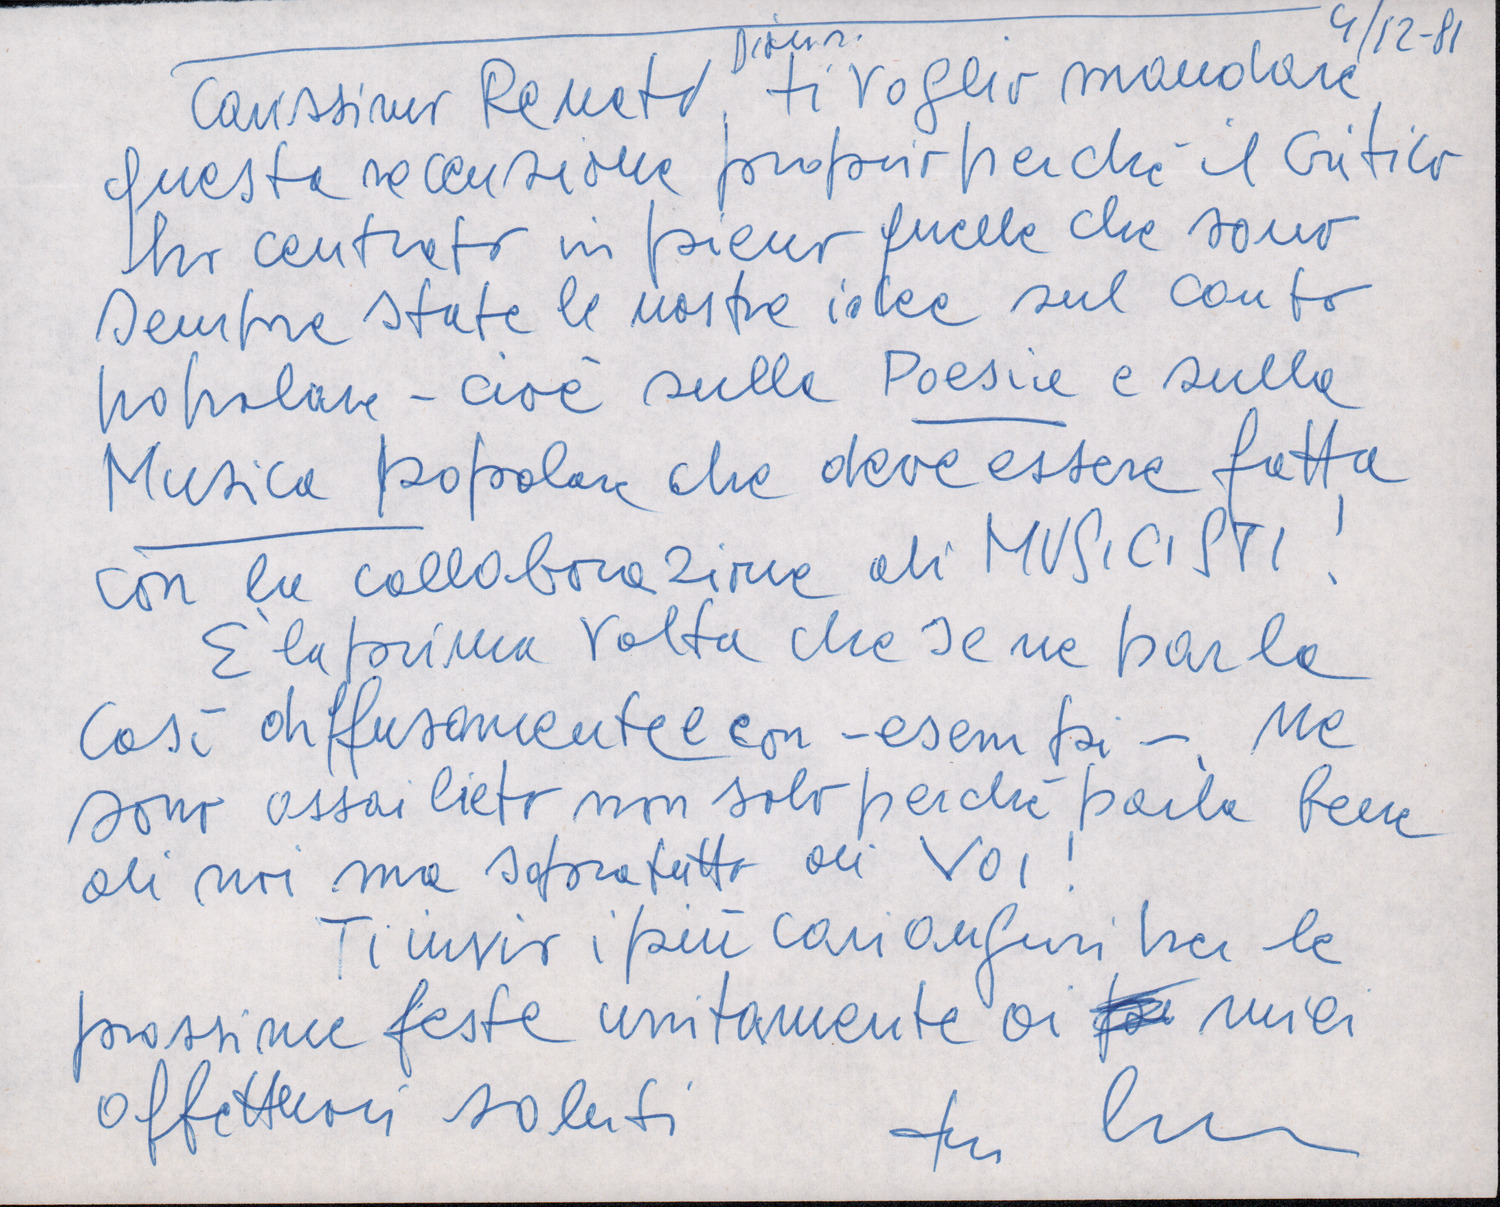 4/12-81
Carissimo Renato, ti voglio mandare
questa recensione proprio perché il Critico
ha centrato in pieno quelle che sono
sempre state le nostre idee sul canto
popolare - cioè sulla Poesia e sulla
Musica popolare che deve essere fatta
con la collaborazione di MUSICISTI!
È la prima volta che se ne parla
così diffusamente e con - esempi -. Ne
sono assai lieto non solo perché parla bene
di noi ma sopratutto di VOI!
Ti invio i più cari auguri per le
prossime feste unitamente ai miei
affettuosi saluti
tuo